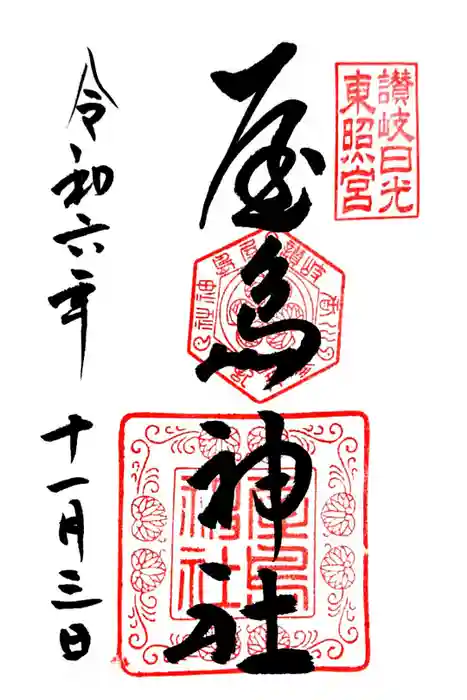 讃岐日光
東照宮
屋島神社
屋島神社
令和六年 十一月三日